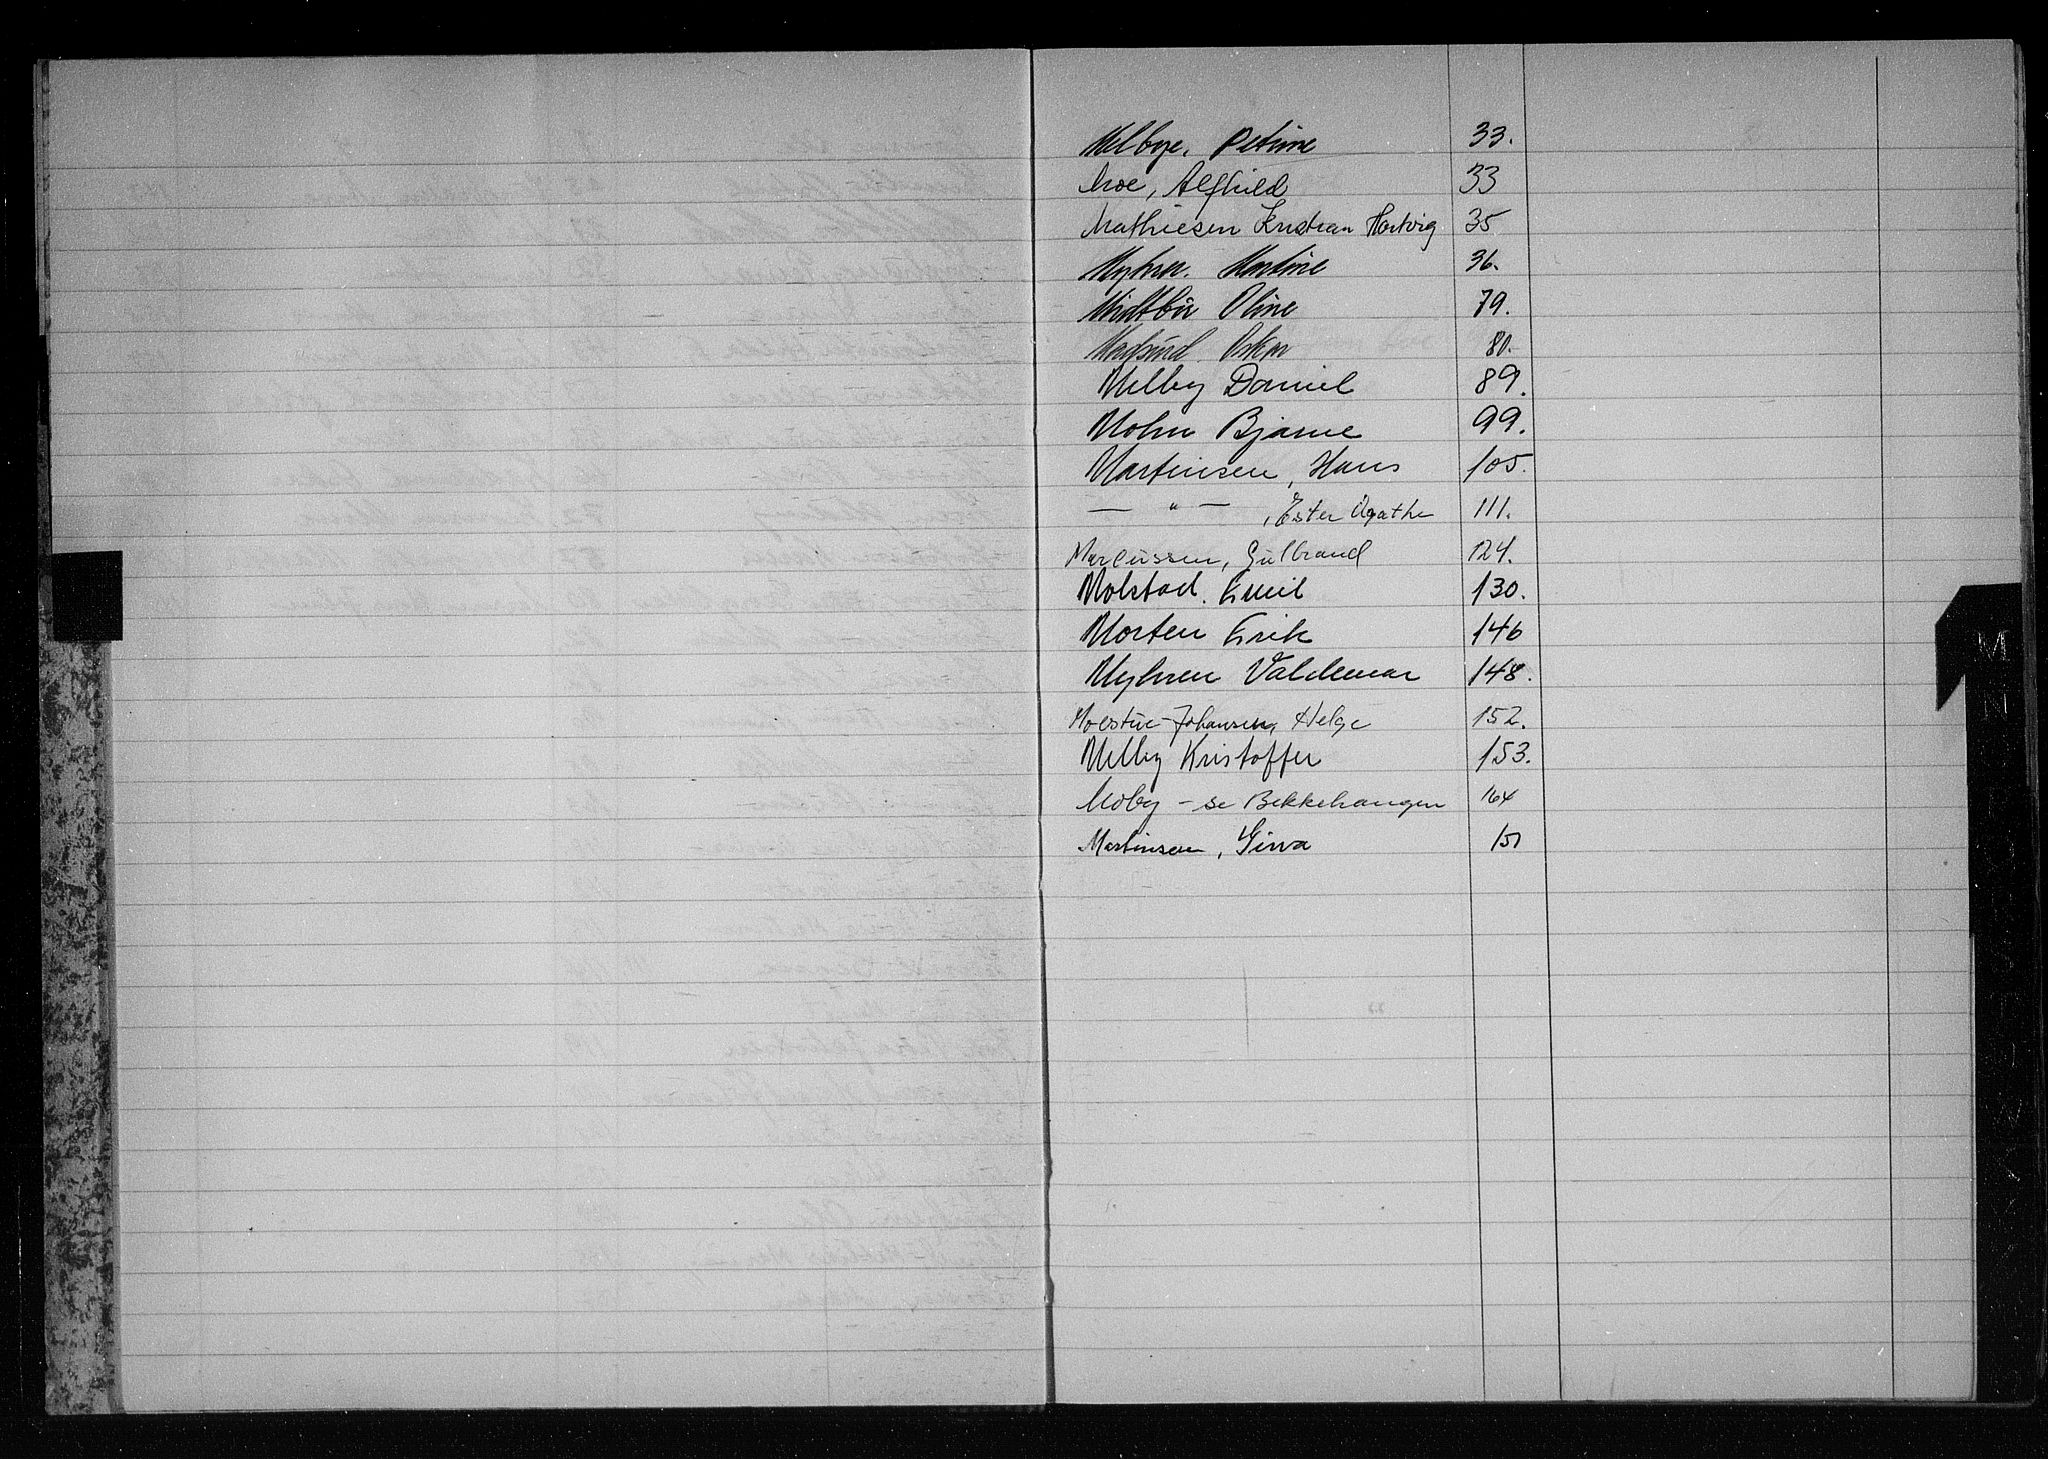 Melbye, Petrine 33.
Moe, Alfhild 33
Mathiesen Kristian Hartvig 35
Myhrer. Martine 36.
Midtbø Oline 79.
Oskar 80.
Melby Daniel 89.
Mohn Bjarne 99.
Martinsen, Hans 105.
— " — , Ester Agathe 111.
Marcussen, Gulbrand 124.
Molstad. Emil 130.
Morten Erik 146
Myhren Valdemar 148.
Moestue-Johansen, Helge 152.
Melby Kristoffer 153.
Moby - se Bekkehaugen 164
Martinsen, Gina 151
M